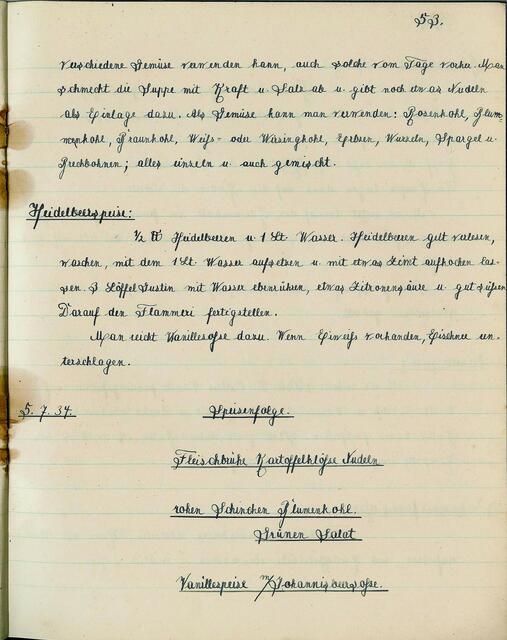 53.
verschiedene Gemüse verwenden kann, auch solche vom Tage vorher. Man
schmeckt die Suppe mit Kraft u. Salz ab u. gibt noch etwas Nudeln
als Einlage dazu. Als Gemüse kann man verwenden: Rosenkohl, Blum-
menkohl, Braunkohl, Weiß- oder Wirsingkohl, Erbsen, Wurzeln, Spargel u.
Brechbohnen; alles einzeln u. auch gemischt.
Heidelbeerspeise:
1/2 ℔ Heidelbeeren u. 1 Lt. Wasser. Heidelbeeren gut verlesen,
waschen, mit dem 1 Lt. Wasser aufsetzen u. mit etwas Zimt aufkochen las-
sen. 3 Löffel Gustin mit Wasser ebenrühren, etwas Zitronensäure u. gut süßen
Darauf den Flammeri fertigstellen.
Man reicht Vanillesoße dazu. Wenn Eiweiß vorhanden, Eischnee un-
terschlagen.
5. 7. 34.
Speisenfolge.
Fleischbrühe Kartoffelklöße Nudeln
rohen Schinken Blumenkohl.
Grünen Salat
Vanillespeise m/Johannisbeersoße.